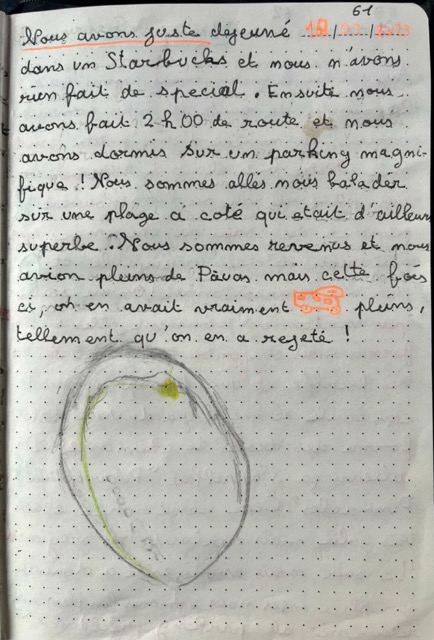 61
Nous avons juste dejeuné
dans un Starbucks et nous n'avons
rien fait de special. Ensuite nous
avons fait 2h00 de route et nous
avons dormis sur un parking magni-
fique! Nous sommes allés nous balader
sur une plage à coté qui etait d'ailleurs
superbe. Nous sommes revenus et nous
avion pleins de Pàuas mais cette fois
ci, on en avait vraiment pleins,
tellement qu'on en a rejeté !